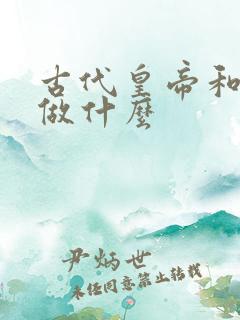 古代皇帝和
做什麼
尹炳世
未经同意禁止转载